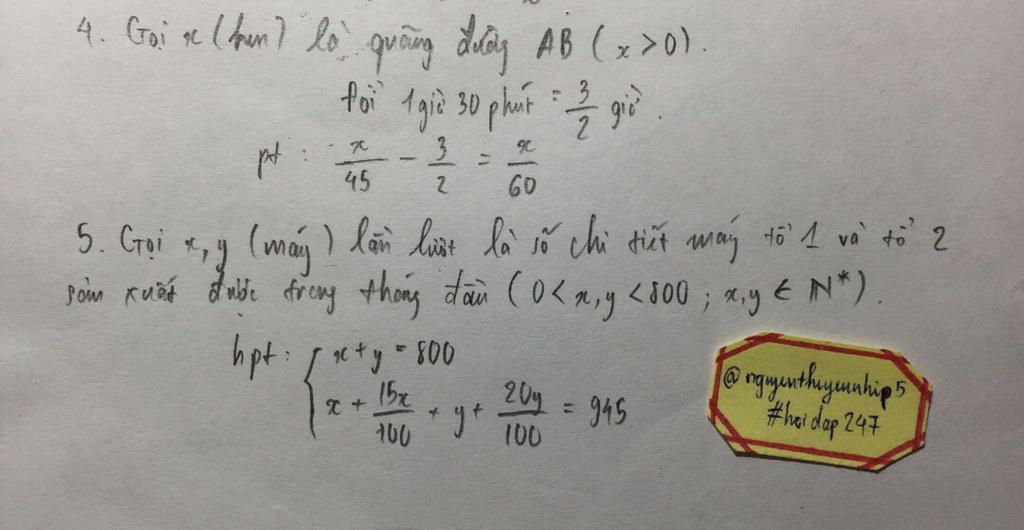 4. Gọi x (km) là quãng đường AB (x > 0).
Đổi 1 giờ 30 phút = 3/2 giờ.
pt : x/45 − 3/2 = x/60
5. Gọi x, y (máy) lần lượt là số chi tiết máy tổ 1 và tổ 2
sản xuất được trong tháng đầu (0 < x, y < 800 ; x, y ∈ ℕ*).
hpt : { x + y = 800
x + 15x/100 + y + 20y/100 = 945
@nguyenthiyeunhip5
#hoidap247